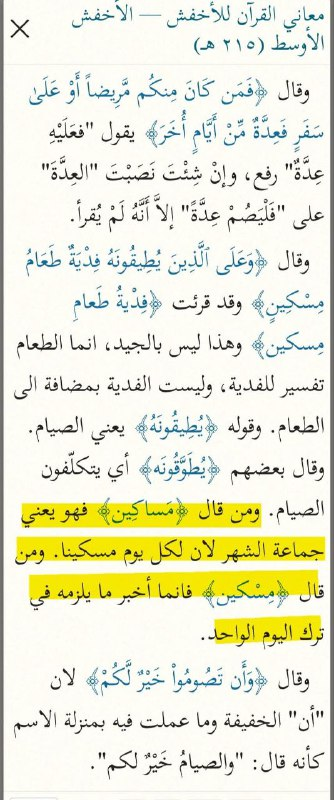 معاني القرآن للأخفش — الأخفش
الأوسط (٢١٥ هـ)
وقال ﴿فَمَن كَانَ مِنكُم مَّرِيضاً أَوْ عَلَىٰ
سَفَرٍ فَعِدَّةٌ مِّنْ أَيَّامٍ أُخَرَ﴾ يقول "فَعَلَيْهِ
عِدَّةٌ" رفع، وإنْ شِئْتَ نَصَبْتَ "العِدَّةَ"
على "فَلْيَصُمْ عِدَّةً" إلاَّ أَنَّهُ لَمْ يُقرأ.
وقال ﴿وَعَلَى ٱلَّذِينَ يُطِيقُونَهُ فِدْيَةٌ طَعَامُ
مِسْكِينٍ﴾ وقد قرئت ﴿فِدْيةُ طَعامِ
مِسكين﴾ وهذا ليس بالجيد، انما الطعام
تفسير للفدية، وليست الفدية بمضافة الى
الطعام. وقوله ﴿يُطِيقُونَهُ﴾ يعني الصيام.
وقال بعضهم ﴿يُطَوَّقُونَه﴾ أي يتكلّفون
الصيام. ومن قال ﴿مَساكِين﴾ فهو يعني
جماعة الشهر لان لكل يوم مسكينا. ومن
قال ﴿مِسْكين﴾ فانما أخبر ما يلزمه في
ترك اليوم الواحد.
وقال ﴿وَأَن تَصُومُواْ خَيْرٌ لَّكُمْ﴾ لان
"أن" الخفيفة وما عملت فيه بمنزلة الاسم
كأنه قال: "والصيامُ خَيْرٌ لكم".